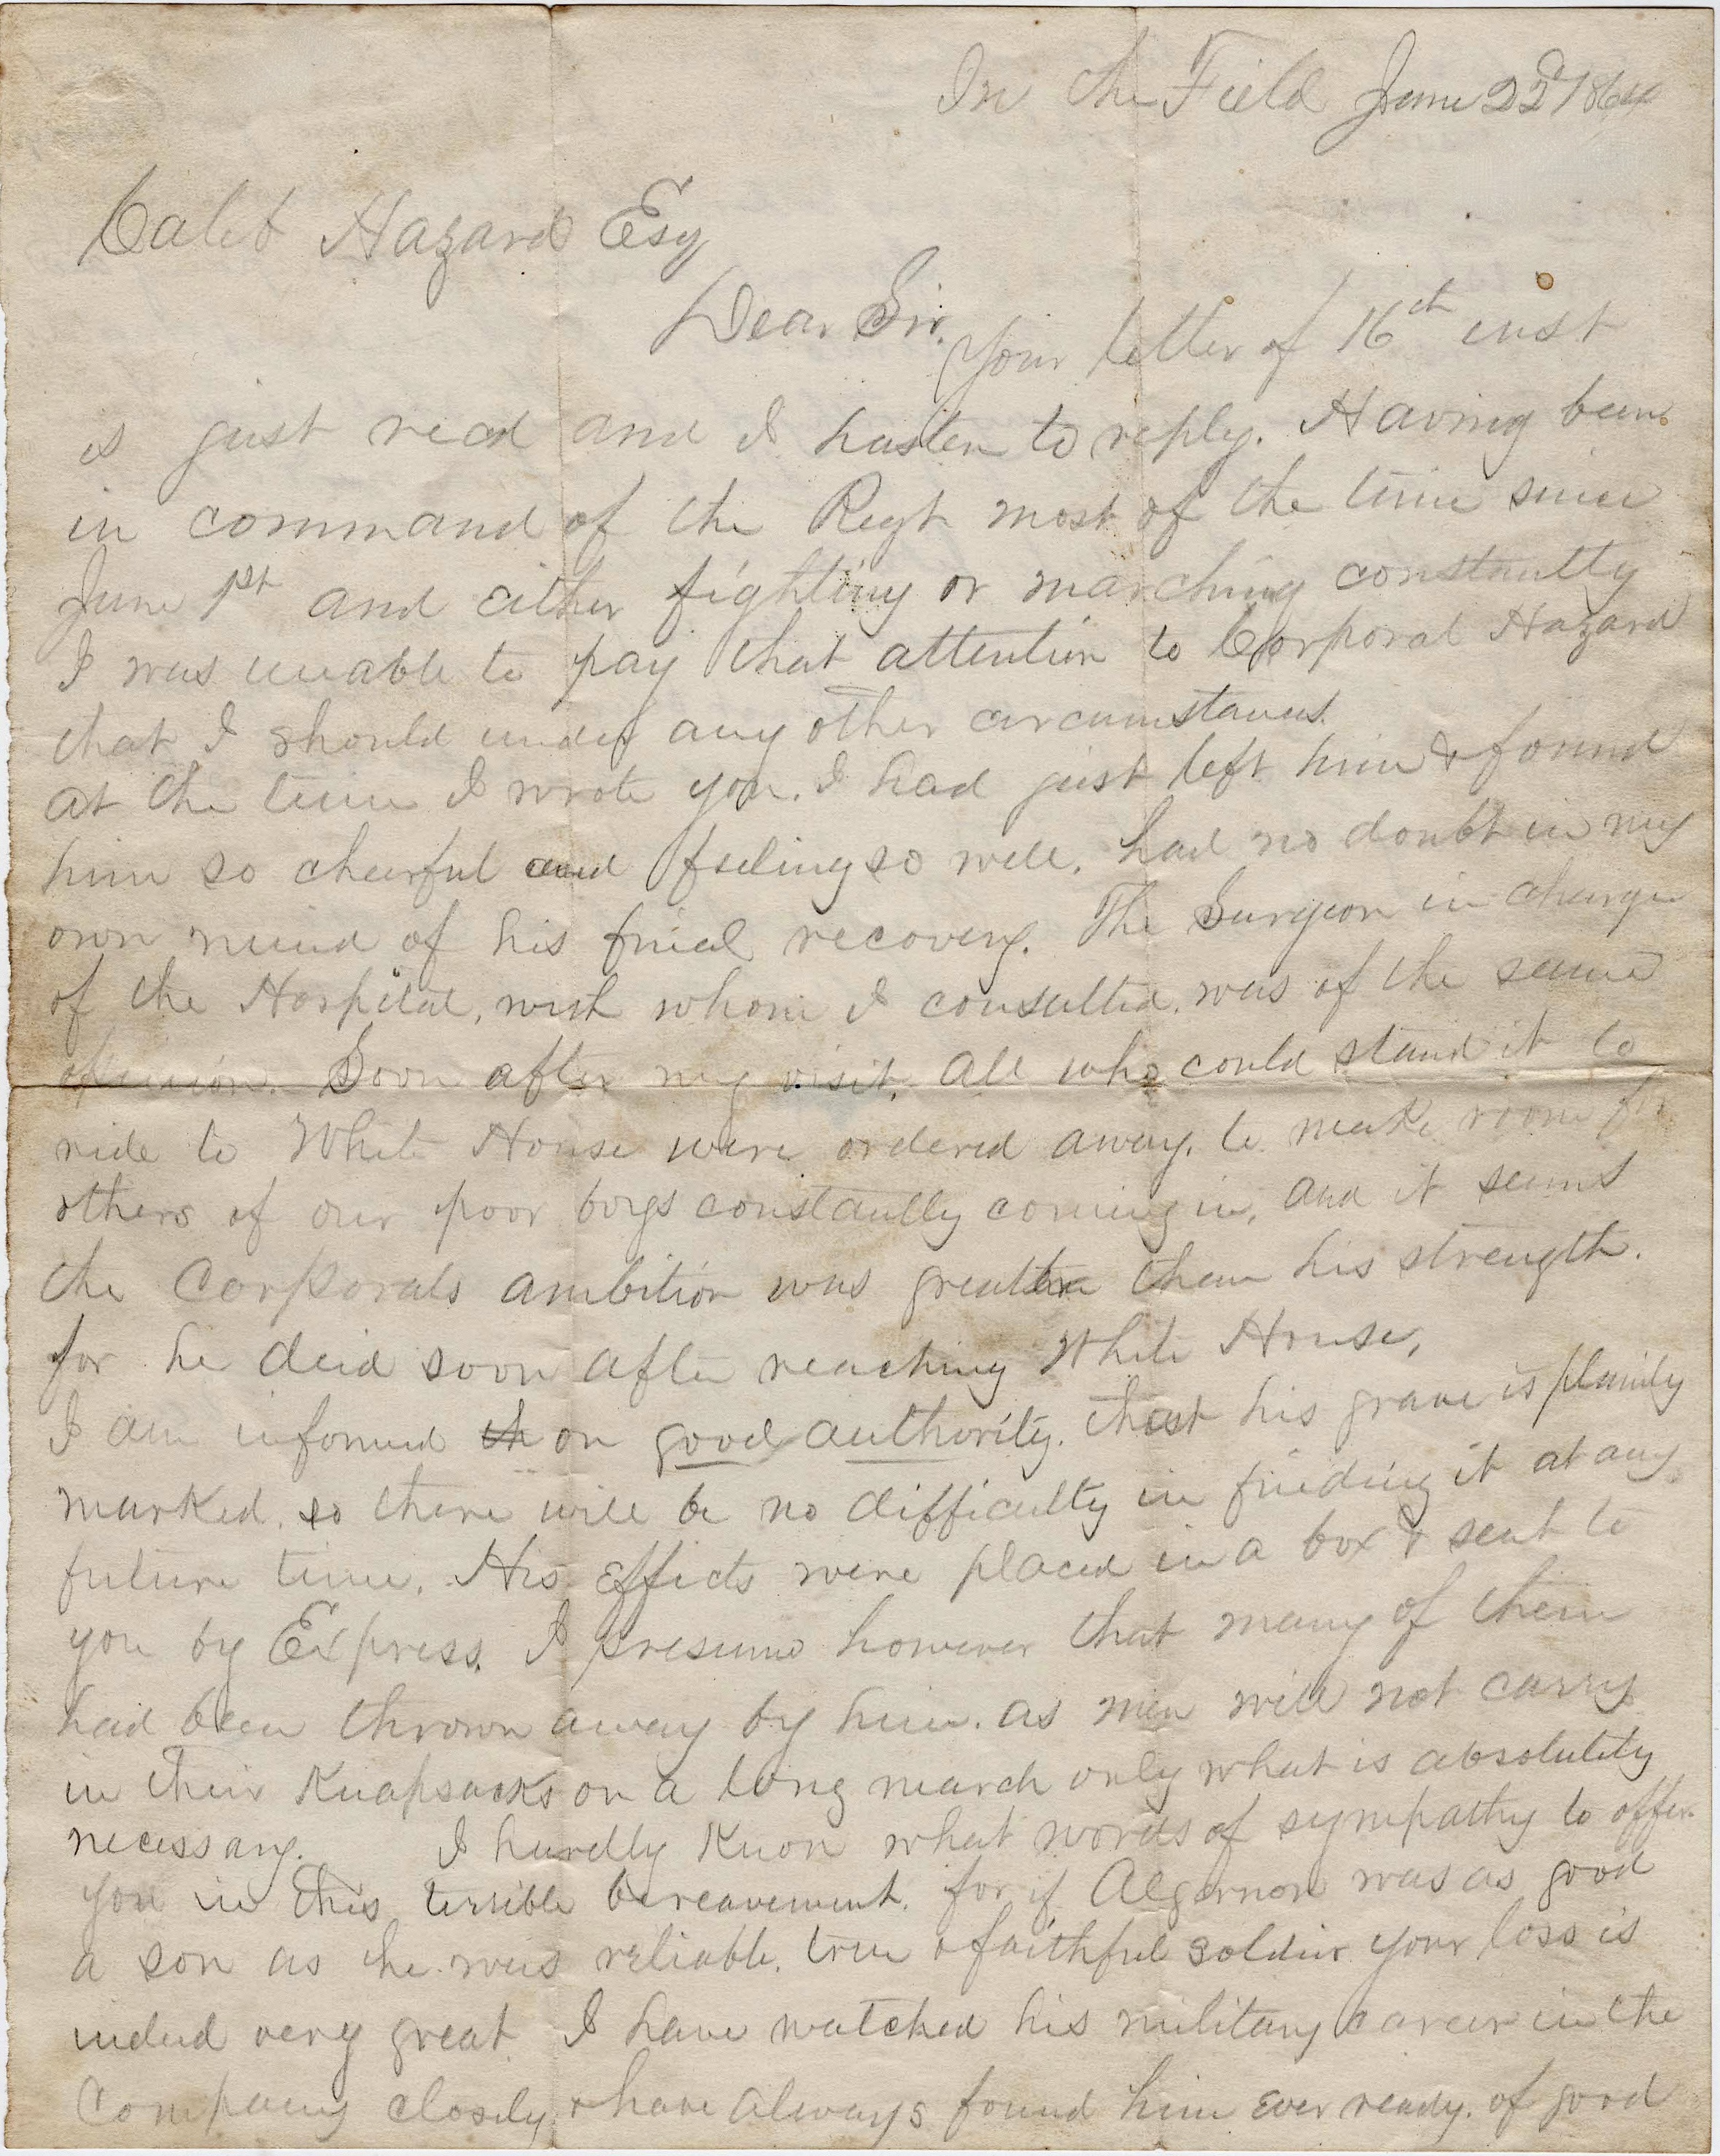 In the Field June 22d 1864
Caleb Hazard Esq
Dear Sir.
Your letter of 16th inst
is just recd and I hasten to reply. Having been
in command of the Regt most of the time since
June 1st and either fighting or marching constantly
I was unable to pay that attention to Corporal Hazard
that I should under any other circumstances.
at the time I wrote you. I had just left him & found
him so cheerful and feeling so well. had no doubt in my
own mind of his final recovery. The Surgeon in charge
of the Hospital, with whom I consulted. was of the same
opinion. Soon after my visit. all who could stand it to
ride to White House were ordered away. to make room for
others of our poor boys constantly coming in, and it seems
the Corporals ambition was greater than his strength.
for he deid soon after reaching White House,
I am informed th on good authority. that his grave is plainly
marked. so there will be no difficulty in finding it at any
future time. His effects were placed in a box & sent to
you by Express. I presume however that many of them
had been thrown away by him. as men will not carry
in their Knapsacks on a long march only what is absolutely
necessary. I hardly Know what words of sympathy to offer
you in this terrible bereavement. for if Algernon was as good
a son as he was reliable. true & faithful soldier your loss is
indeed very great. I have watched his military career in the
Company closely & have always found him ever ready. of good